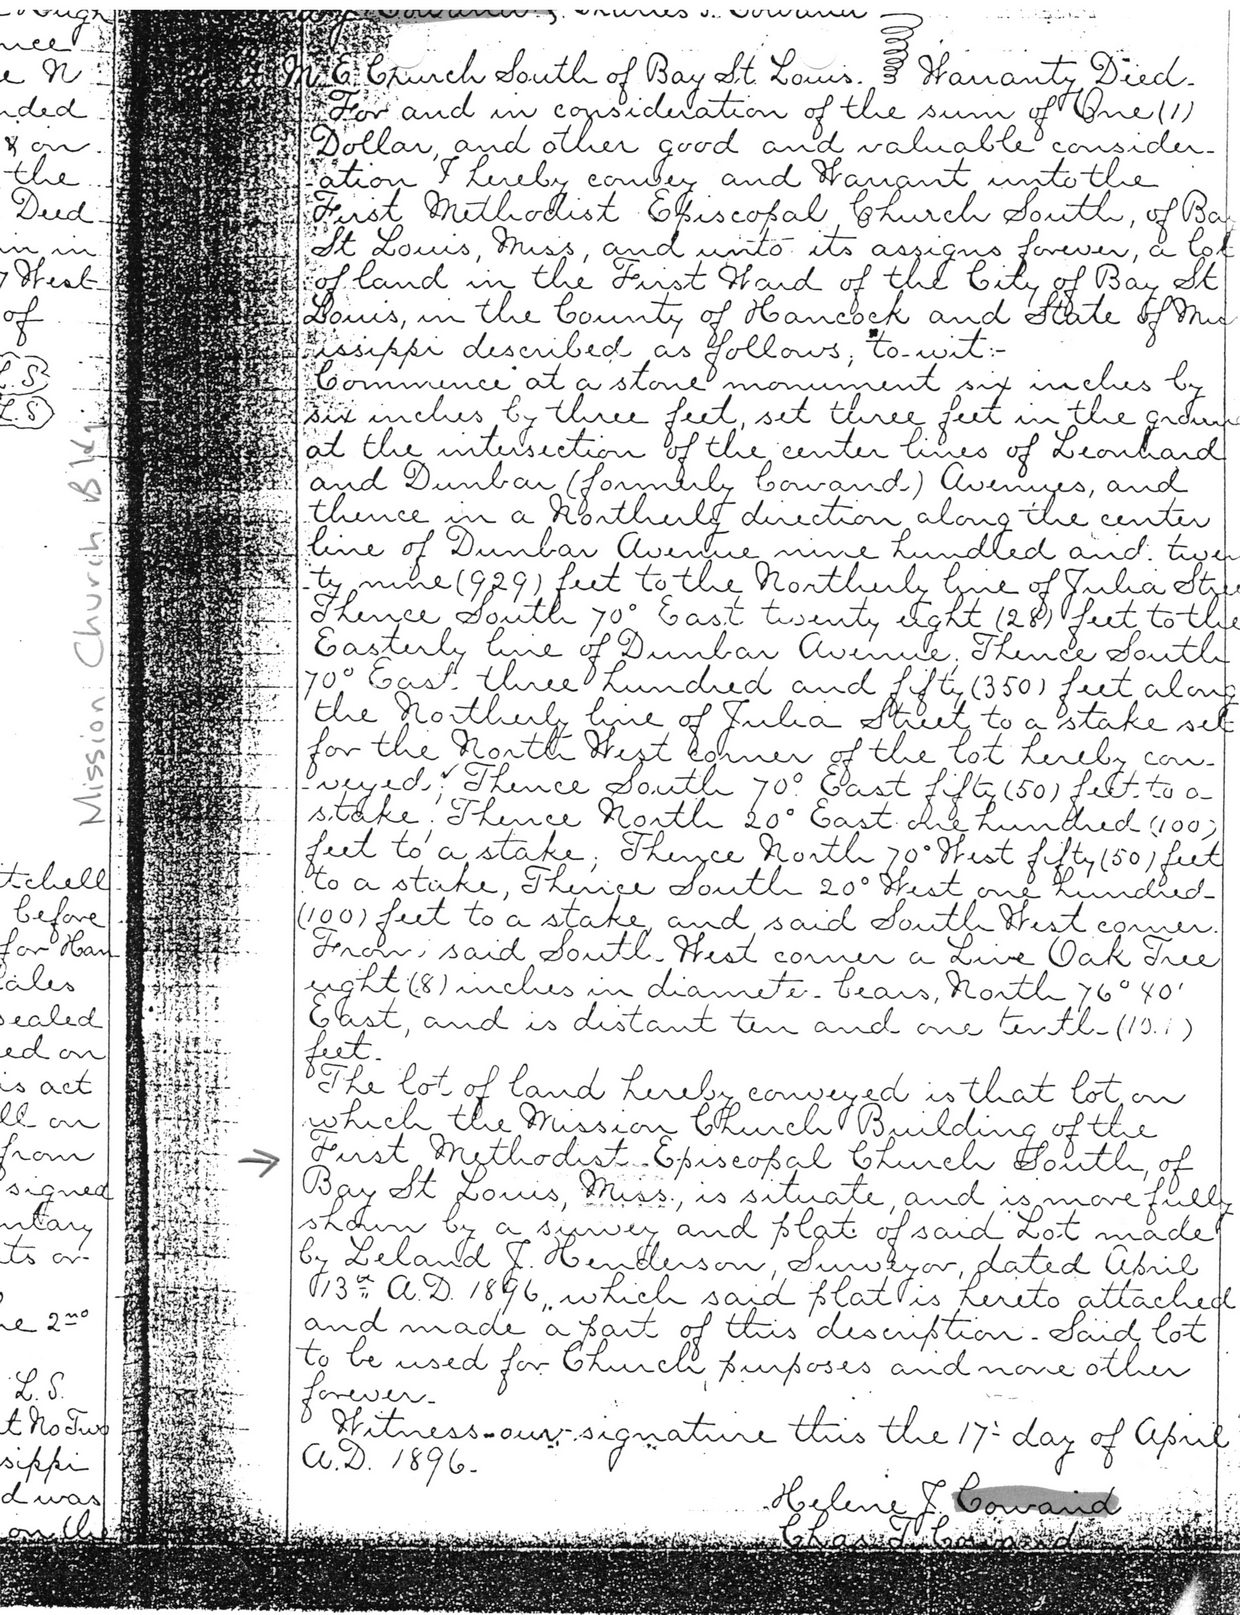 Cowand & Charles T. Cowand
M. E. Church South of Bay St. Louis. Warranty Deed-
For and in consideration of the sum of One (1)
Dollar, and other good and valuable consider-
ation I hereby convey and Warrant unto the
First Methodist Episcopal Church South, of Bay
St Louis, Miss, and unto its assigns forever, a lot
of land in the First Ward of the City of Bay St
Louis, in the County of Hancock and State of Mis
issippi described as follows, to-wit:-
Commence at a stone monument six inches by
six inches by three feet, set three feet in the ground
at the intersection of the center lines of Leonhard
and Dunbar (formerly Cowand) Avenues, and
thence in a Northerly direction along the center
line of Dunbar Avenue nine hundred and twen
ty nine (929) feet to the Northerly line of Julia Stree
Thence South 70° East twenty eight (28) feet to the
Easterly line of Dunbar Avenue. Thence South
70° East three hundred and fifty (350) feet along
the Northerly line of Julia Street to a stake set
for the North West corner of the lot hereby con-
veyed; Thence South 70° East fifty (50) feet to a
stake; Thence North 20° East one hundred (100)
feet to a stake; Thence North 70° West fifty (50) feet
to a stake, Thence South 20° West one hundred
(100) feet to a stake and said South West corner.
From said South-West corner a Live Oak Tree
eight (8) inches in diamete- bears, North 76° 40'
East, and is distant ten and one tenth (10.1)
feet.
The lot of land hereby conveyed is that lot on
which the Mission Church Building of the
First Methodist Episcopal Church South, of
Bay St Louis, Miss., is situate, and is more fully
shown by a survey and plat of said Lot made
by Leland J. Henderson, Surveyor, dated April
13th A.D. 1896, which said plat is hereto attached
and made a part of this description. Said lot
to be used for Church purposes and none other
forever-
Witness our signature this the 17- day of April
A.D. 1896.
Helene J. Cowand
Chas. T. Cowand
Mission Church Bldg.
nce
e N
nded
& on
the
Deed
in in
West
of
L.S
L.S
tchell
before
for Han
ales
sealed
ed on
is act
ll on
from
signed
ntary
ts or
he 2nd
L.S.
t No Two
sippi
d was
on the